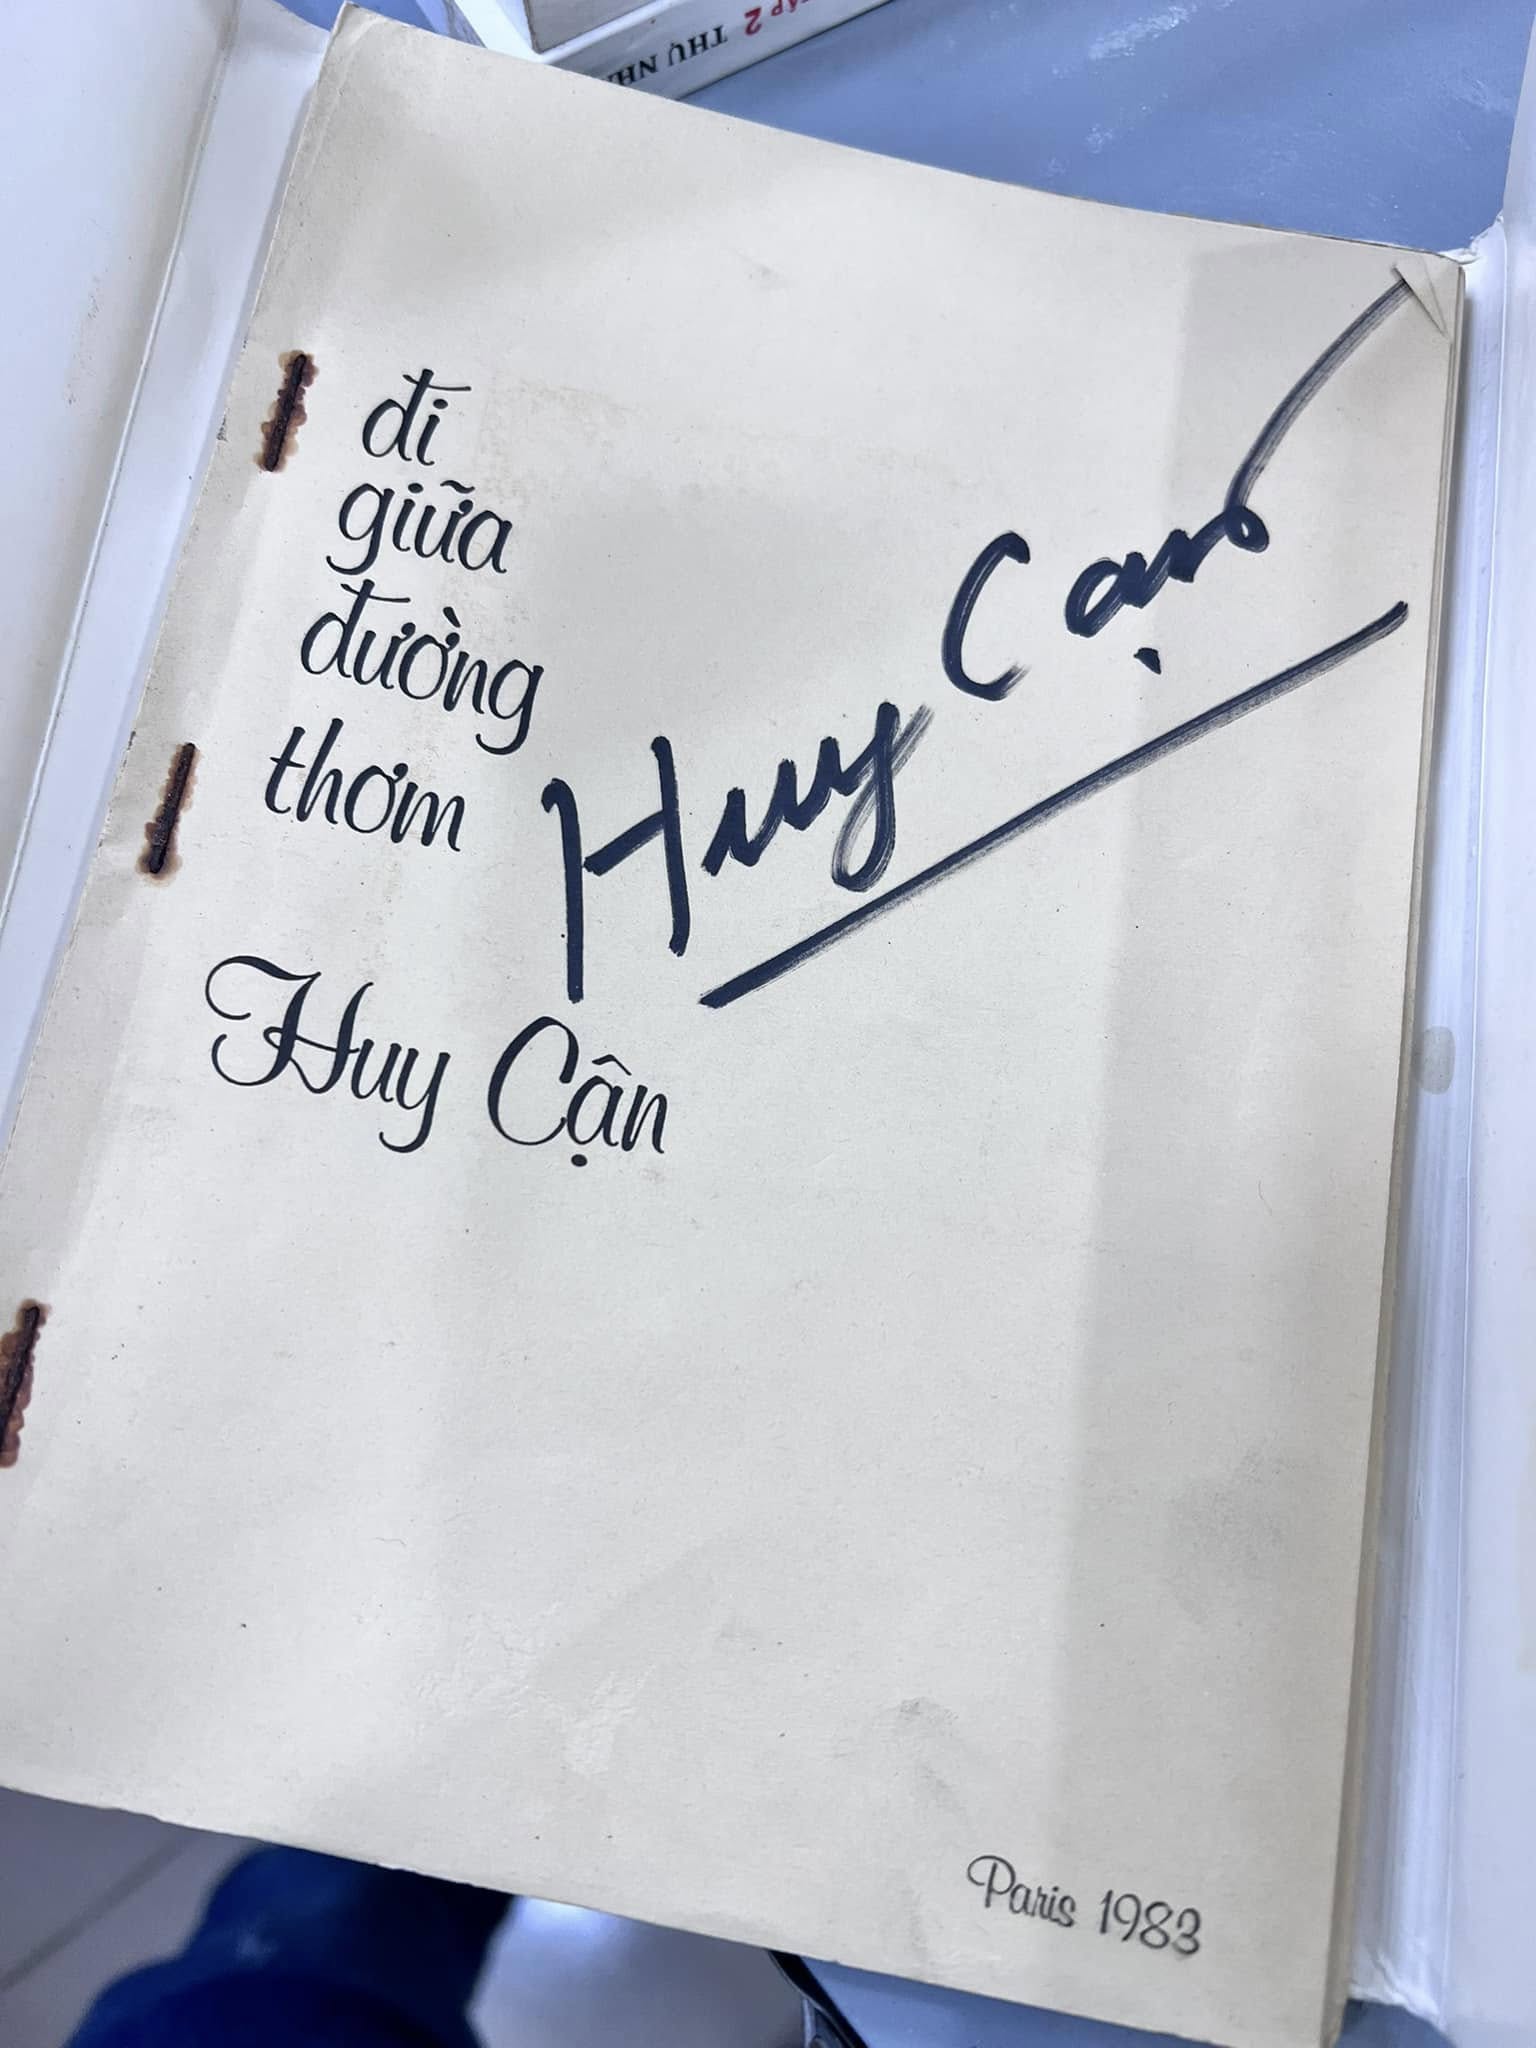 TẬP 2 THỤ NH
đi
giữa
đường
thơm
Huy Cận
Huy Cận
Paris 1983